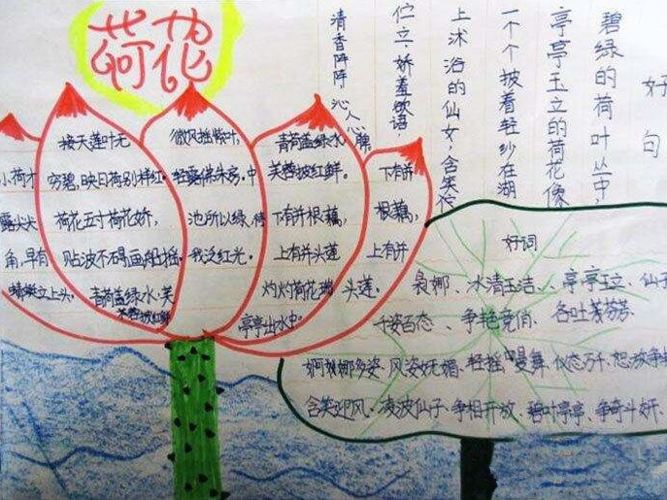 荷花
小荷才
露尖尖
角,早有
蜻蜓立上头。
接天莲叶无
穷碧,映日荷别样红。
荷花五寸荷花娇,
贴波不碍画船摇。
青荷盖绿水,芙
蓉披红鲜
微风摇紫叶,
轻露拂朱房,中
池所以绿,待
我泛红光。
青荷盖绿水,
芙蓉披红鲜。
下有并根藕,
上有并头莲
灼灼荷花瑞,
亭亭出水中。
下有并
根藕,
上有并
头莲。
好句
碧绿的荷叶丛中,
亭亭玉立的荷花像
一个个披着轻纱在湖
上沐浴的仙女,含笑伫
伫立,娇羞欲语
清香阵阵 沁人心脾
好词
袅娜、冰清玉洁、亭亭玉立、仙
千姿百态、争艳竞俏、各吐芬芳
婀娜多姿、风姿妩媚、轻摇曼舞、仪态万千、怒放争
含笑迎风、凌波仙子、争相开放、碧叶亭亭、争奇斗妍